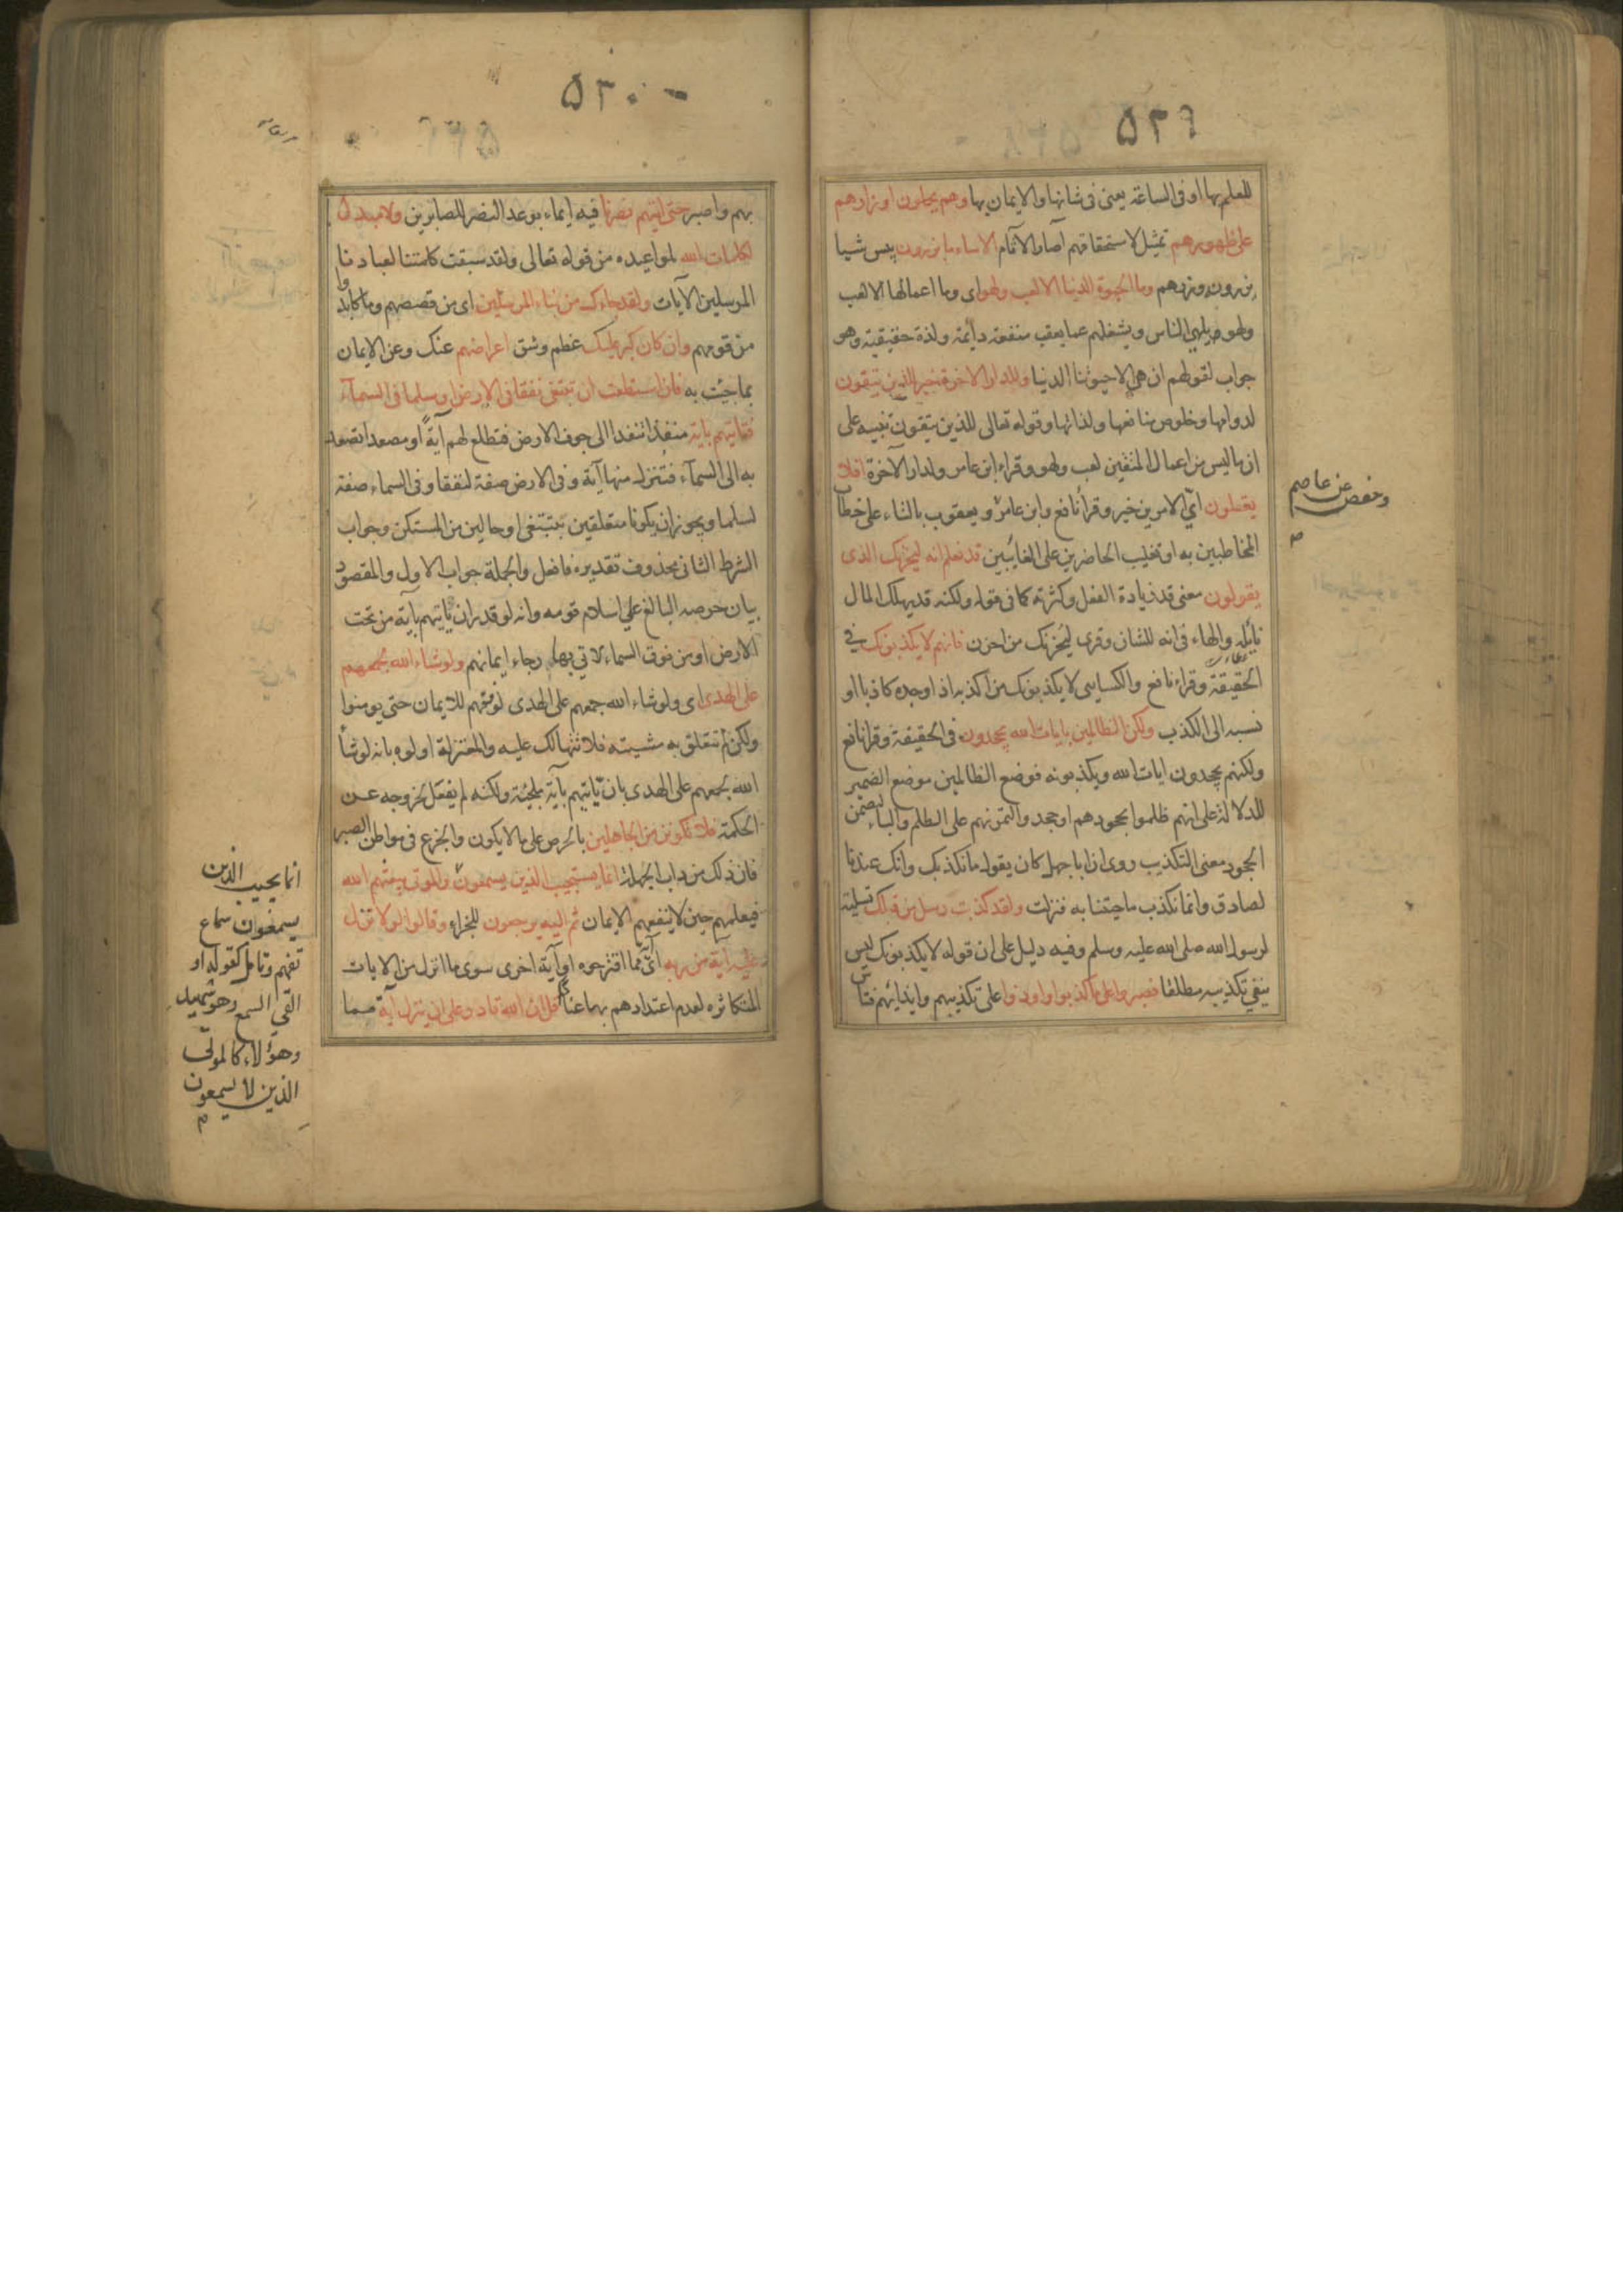 ٥٢٩
للعلم بها او فى الساعة يعنى فى شانها والايمان بها وهم يحملون اوزارهم
على ظهورهم تمثيل لاستحقاقهم آصار الآثام الاساء ما يزرون بيس شيا
يزرون وزرهم وما الحيوة الدنيا الا لعب ولهو اى وما اعمالها الا لعب
ولهو يلهى الناس ويشغلهم عما يعقب منفعة دائمة ولذة حقيقية وهو
جواب لقولهم ان هى الا حيوتنا الدنيا وللدار الاخرة خير للذين يتقون
لدوامها وخلوص منافعها ولذاتها وقوله تعالى للذين يتقون تنبيه على
ان ما ليس من اعمال المتقين لعب ولهو وقراء ابن عامر ولدار الآخرة افلا
يعقلون اىّ الامرين خير وقرأ نافع وابن عامر ويعقوب بالتاء على خطاب
وحفص عن عاصم
المخاطبين به او تغليب الحاضرين على الغايبين قد نعلم انه ليحزنك الذى
يقولون معنى قد زيادة الفعل وكثرته كما فى قوله ولكنه قد يهلك المال
نايله والهاء فى انه للشان وقرى ليُحزنك من احزن فانهم لا يكذبونك فى
الحقيقة وقراء نافع والكسايى لا يكذبونك من اكذبه اذا وجده كاذبا او
نسبه الى الكذب ولكن الظالمين بايات الله يجحدون فى الحقيقة وقرا نافع
ولكنهم يجحدون ايات الله ويكذبونه فوضع الظالمين موضع الضمير
للدلالة على انهم ظلموا بجحودهم او جحدوا لتمرنهم على الظلم والباء لتضمن
الجحود معنى التكذيب روى ان ابا جهل كان يقول ما نكذبك وانك عندنا
لصادق وانما نكذب ما جيتنا به فنزلت ولقد كذبت رسل من قبلك تسلية
لرسول الله صلى الله عليه وسلم وفيه دليل على ان قوله لا يكذبونك ليس
ينفي تكذيبه مطلقا فصبروا على ما كذبوا واوذوا على تكذيبهم وايذائهم فتاس
٥٣٠
بهم واصبر حتى اتيهم نصرنا فيه ايماء بوعد النصر للصابرين ولا مبدل
لكلمات الله لمواعيده من قوله تعالى ولقد سبقت كلمتنا لعبادنا
المرسلين الآيات ولقد جاءك من نباء المرسلين اى من قصصهم وما كابدوا
من قومهم وان كان كبر عليك عظم وشق اعراضهم عنك وعن الايمان
بما جئت به فان استطعت ان تبتغى نفقا فى الارض او سلما فى السماء
فتاتيهم باية منفذا تنفذ الى جوف الارض فتطلع لهم آيةً او مصعدا تصعد
به الى السمآء فتنزل منها آية وفى الارض صفة لنفقا وفى السماء صفة
لسلما ويجوز ان يكونا متعلقين بتبتغى او حالين من المستكن وجواب
الشرط الثانى محذوف تقديره فافعل والجملة جواب الاول والمقصود
بيان حرصه البالغ على اسلام قومه وانه لو قدر ان ياتيهم بآية من تحت
الارض او من فوق السماء لاتى بها رجاء ايمانهم ولو شاء الله لجمعهم
على الهدى اى ولو شاء الله جمعهم على الهدى لوفقهم للايمان حتى يومنوا
ولكن لم تتعلق به مشيته فلا تتهالك عليه والمعتزلة اولوه بانه لو شاء
الله لجمعهم على الهدى بان ياتيهم بآية ملجئة ولكنه لم يفعل لخروجه عن
الحكمة فلا تكونن من الجاهلين بالحرص على ما لا يكون والجزع فى مواطن الصبر
فان ذلك من داب الجهلة انما يستجيب الذين يسمعون والموتى يبعثهم الله
فيعلمهم حين لا ينفعهم الايمان ثم اليه يرجعون للجزاء وقالوا لولا نزل
عليه آية من ربه اىّ مما اقترحوه او آية اخرى سوى ما انزل من الايات
المتكاثره لعدم اعتدادهم بها عنادا قل ان الله قادر على ان ينزل آية مما
انما يجيب الذين
يسمعون سماع
تفهم وتامل كقوله او
القى السمع وهو شهيد
وهؤلاء كالموتى
الذين لا يسمعون